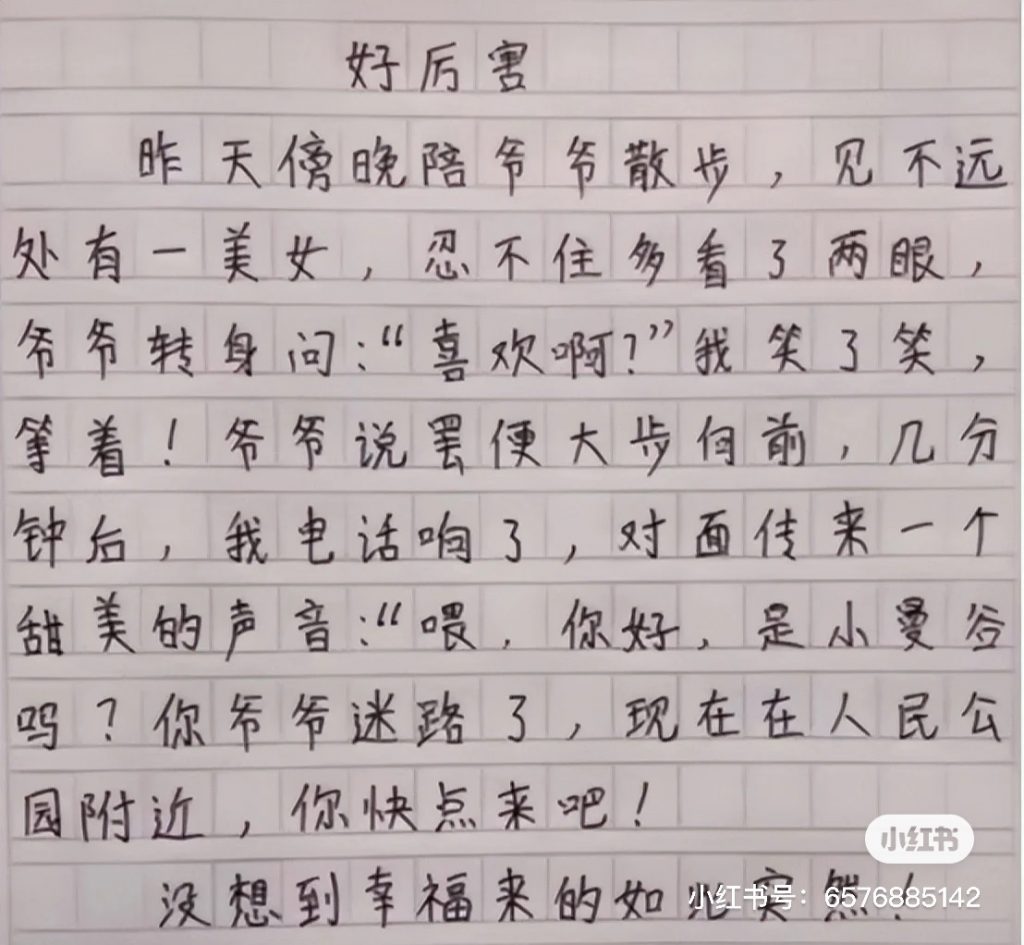 好厉害
昨天傍晚陪爷爷散步，见不远
处有一美女，忍不住多看了两眼，
爷爷转身问：“喜欢啊？”我笑了笑，
等着！爷爷说罢便大步向前，几分
钟后，我电话响了，对面传来一个
甜美的声音：“喂，你好，是小曼谷
吗？你爷爷迷路了，现在在人民公
园附近，你快点来吧！
小红书
没想到幸福来的如此突然！
小红书号：6576885142